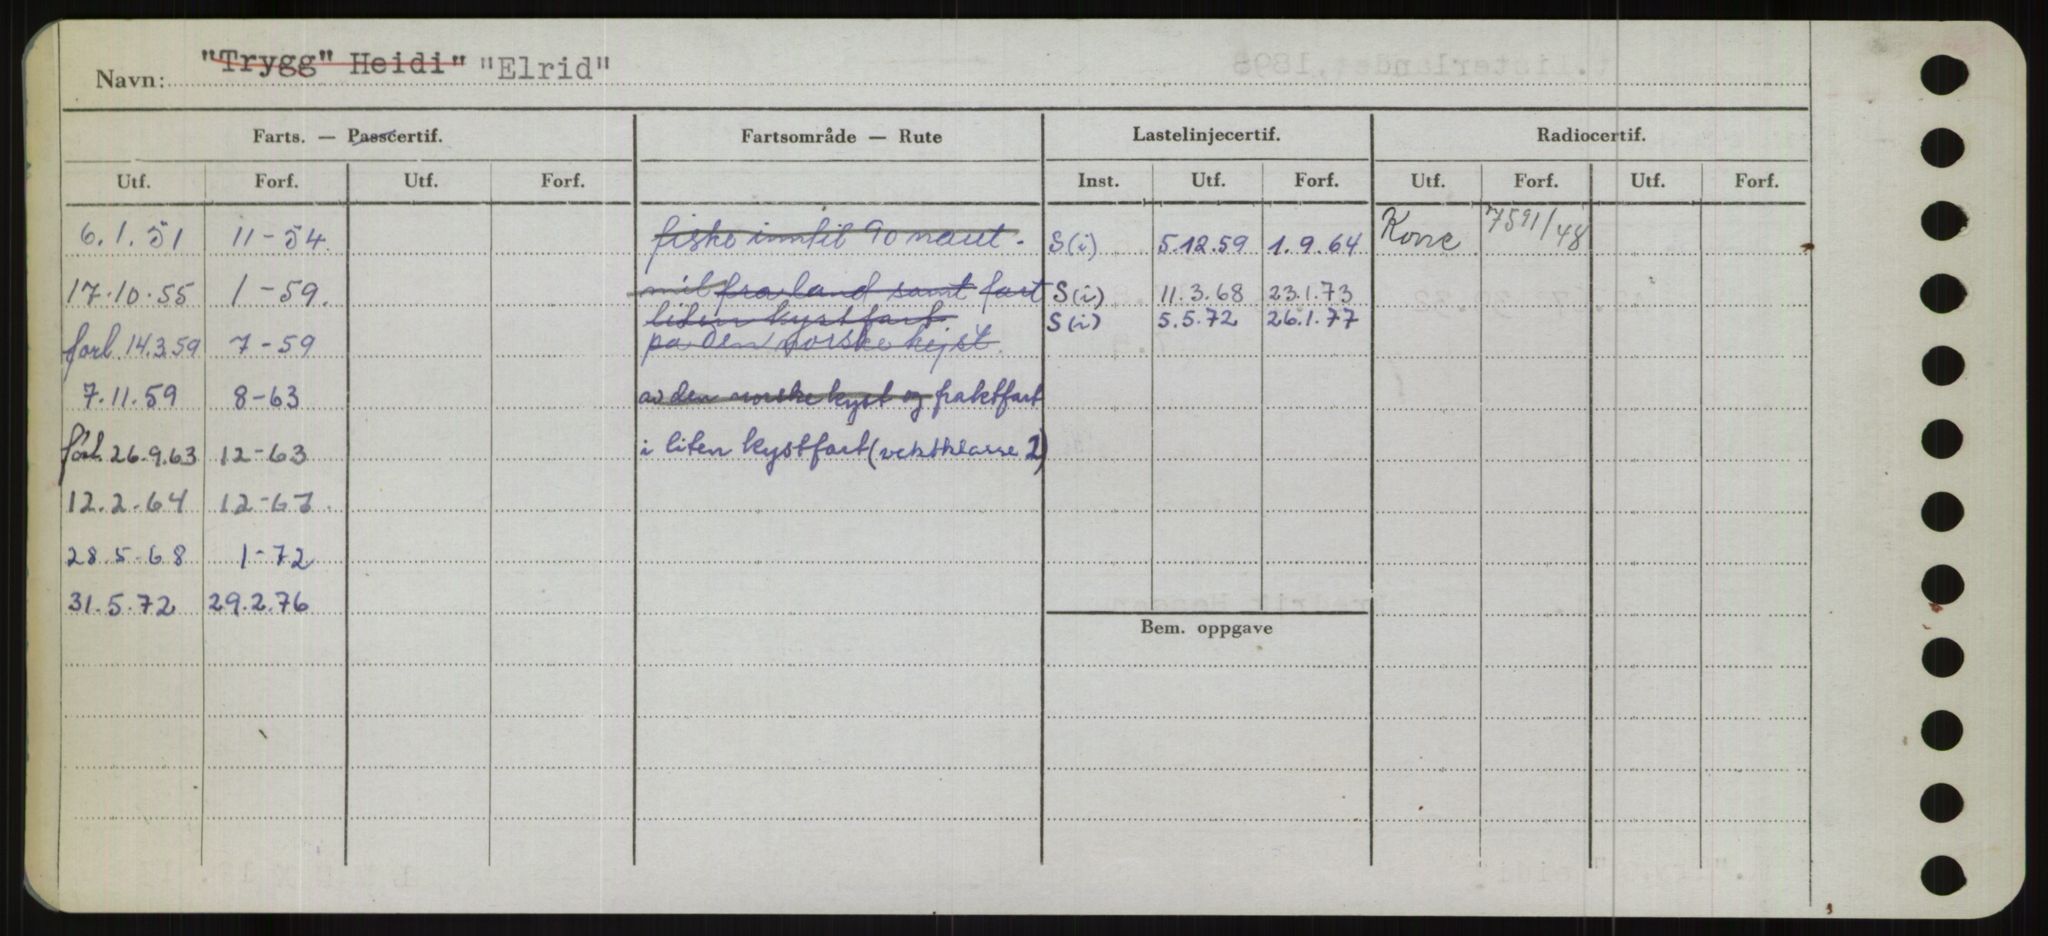 Navn: "Trygg" Heidi" "Elrid"
Farts. — Passcertif. Fartsområde — Rute Lastelinjecertif. Radiocertif.
Utf. Forf. Utf. Forf. Inst. Utf. Forf. Utf. Forf. Utf. Forf.
6.1.51 11-54. fiske inntil 90 naut. S(i) 5.12.59 1.9.64 7591/48
17.10.55 1-59. mil fra land samt fart S(i) 11.3.68 23.1.73
liten kystfart S(i) 5.5.72 26.1.77
forl 14.3.59 7-59 på den norske kyst.
7.11.59 8-63 av den norske kyst og fraktfart
forl. 26.9.63 12-63 i liten kystfart (vektklasse 2)
12.2.64 12-67.
28.5.68 1-72
31.5.72 29.2.76
Bem. oppgave